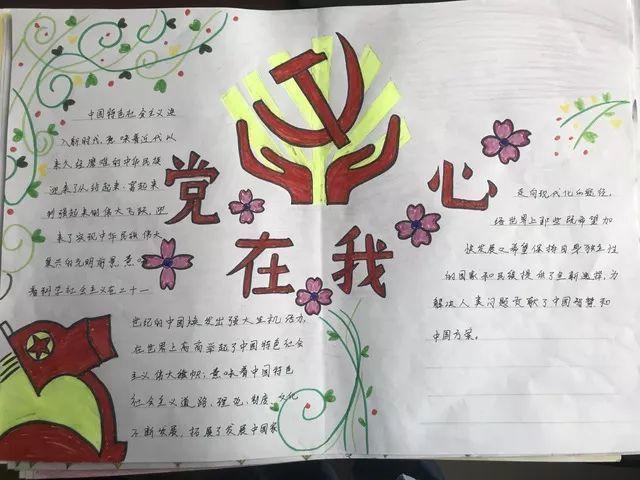 党
在我
心
中国特色社会主义进
入新时代,意味着近代以
来久经磨难的中华民族
迎来了从站起来、富起来
到强起来的伟大飞跃,迎
来了实现中华民族伟大
复兴的光明前景;意味
着科学社会主义在二十一
世纪的中国焕发出强大生机活力,
在世界上高高举起了中国特色社会
主义伟大旗帜;意味着中国特色
社会主义道路、理论、制度、文化
不断发展,拓展了发展中国家
走向现代化的途径,
给世界上那些既希望加
快发展又希望保持自身独立性
的国家和民族提供了全新选择,为
解决人类问题贡献了中国智慧和
中国方案。